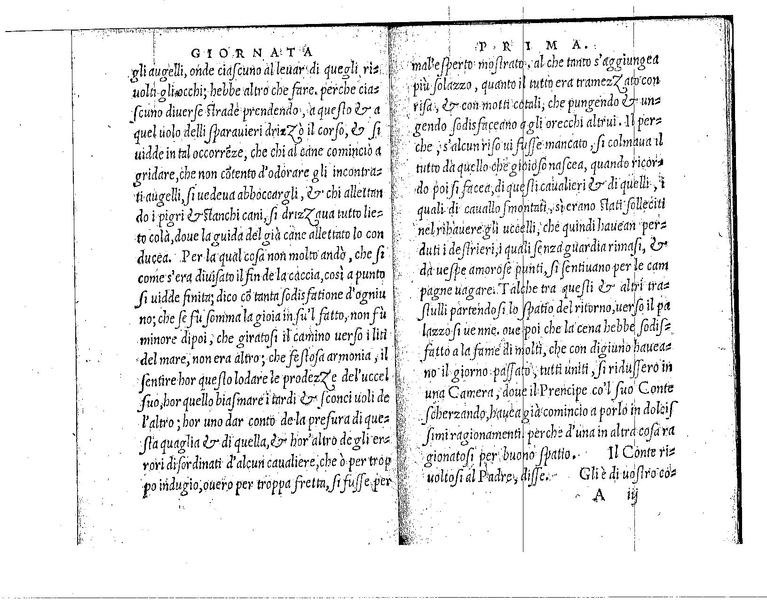 GIORNATA
gli augelli, onde ciascuno al leuar di quegli ri-
uolti gli occhi; hebbe altro che fare. perche cia-
scuno diuerse strade prendendo, a questo & a
quel uolo delli sparauieri drizzò il corso, & si
uidde in tal occorrẽze, che chi al cane cominciò a
gridare, che non cõtento d'odorare gli incontra-
ti augelli, si uedeua abboccargli, & chi allettan
do i pigri & stanchi cani, si drizzaua tutto lie-
to colà, doue la guida del già cane allettato lo con
ducea. Per la qual cosa non molto andò, che si
come s'era diuisato il fin de la caccia, così a punto
si uidde finita; dico cõ tanta sodisfatione d'ogniu
no; che se fù somma la gioia in su'l fatto, non fù
minore dipoi, che giratosi il camino uerso i liti
del mare, non era altro; che festosa armonia, il
sentire hor questo lodare le prodezze del'uccel
suo, hor quello biasmare i tardi & sconci uoli de
l'altro; hor uno dar conto de la presura di que-
sta quaglia & di quella, & hor'altro de gli er-
rori disordinati d'alcun caualiere, che ò per trop
po indugio, ouero per troppa fretta, si fusse per
PRIMA.
mal'esperto mostrato. al che tanto s'aggiungea
più solazzo, quanto il tutto era tramezzato con
risa, & con motti cotali; che pungendo & un-
gendo sodisfaceano a gli orecchi altrui. Il per-
che, s'alcun riso ui fusse mancato, si colmaua il
tutto da quello che gioioso nascea, quando ricor-
do poi si facea, di questi caualieri & di quelli, i
quali di cauallo smontati, si erano stati solleciti
nel rihauere gli uccelli, che quindi hauean per-
duti i destrieri, i quali senza guardia rimasi, &
da uespe amorose punti, si sentiuano per le cam
pagne uagare. Talche tra questi & altri tra-
stulli partendosi lo spatio del ritorno, uerso il pa
lazzo si uenne. oue poi che la cena hebbe sodis-
fatto a la fame di molti, che con digiuno hauea-
no il giorno passato, tutti uniti, si ridussero in
una Camera, doue il Prencipe co'l suo Conte
scherzando, hauea già comincio a porlo in dolcis
simi ragionamenti. perche d'una in altra cosa ra
gionatosi per buono spatio. Il Conte ri-
uoltosi al Padre, disse. Gli è di uostro co-
A iij